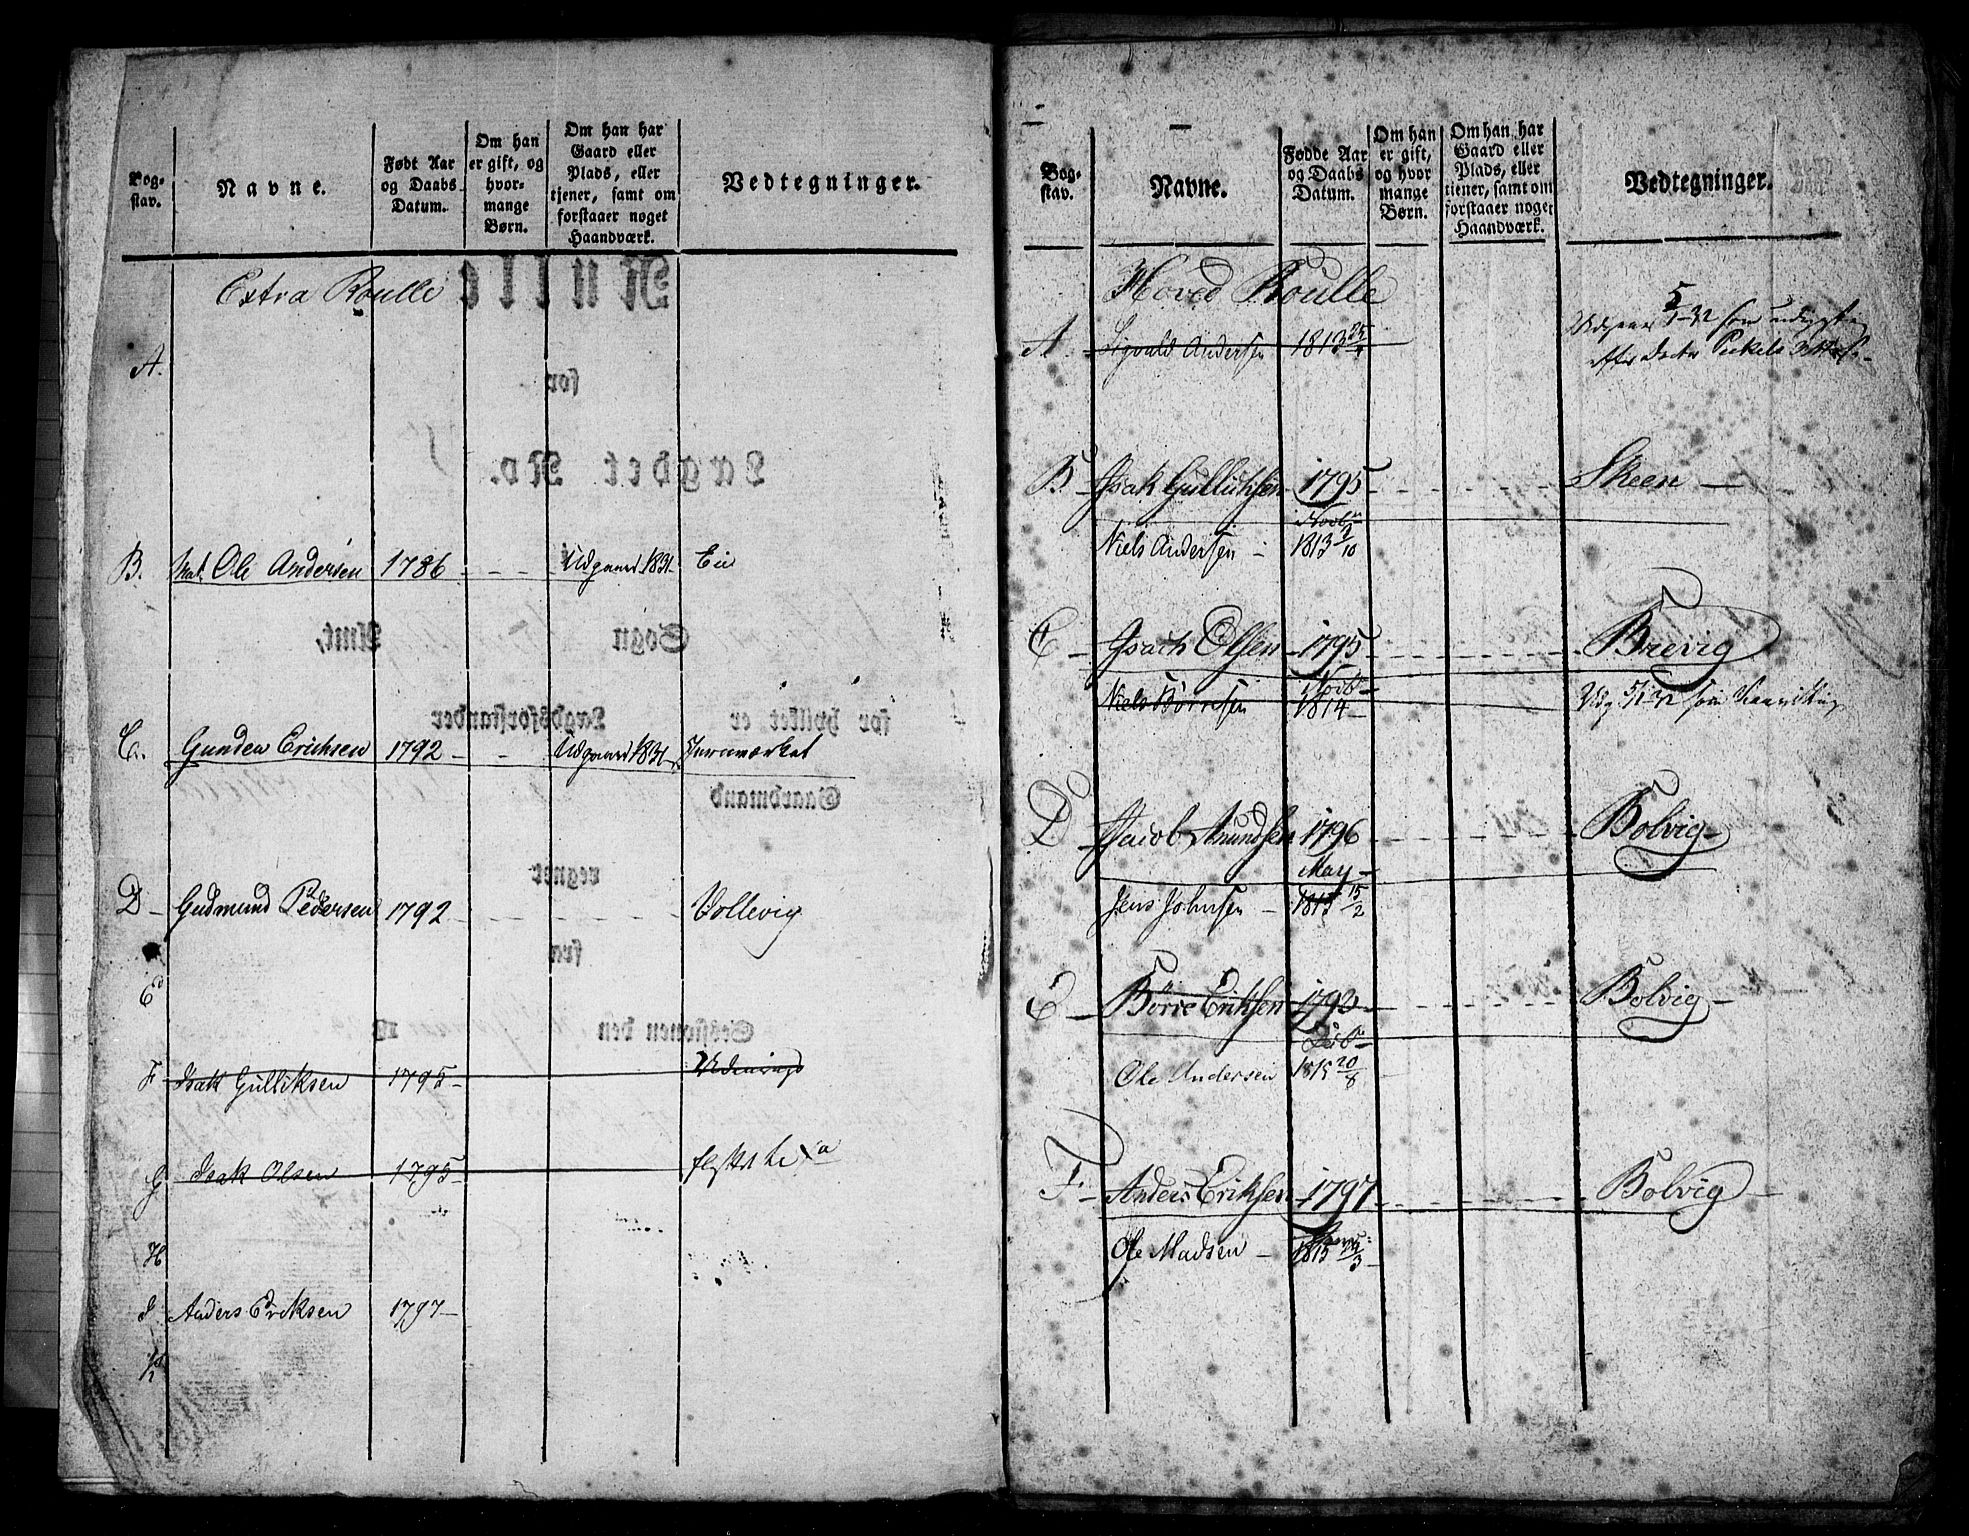 Bog-
stav.
Navne.
Født Aar
og Daabs
Datum.
Om han
er gift, og
hvor-
mange
Børn.
Om han har
Gaard eller
Plads, eller
tjener, samt om
forstaaer noget
Haandværk.
Vedtegninger.
Extra Roulle
A.
B. Mat. Ole Andersen 1786 - - - Udgaaed 1831
C. Gunden Erichsen 1792 - - Udgaaed 1831 Jernværket
D - Gudmund Pedersen 1792 - - - Vollevig
E
F Isak Gulliksen 1795
G Isak Olsen 1795
H
I Anders Eriksen 1797
K
Bog-
stav.
Navne.
Fødde Aar
og Daabs
Datum.
Om han
er gift,
og hvor
mange
Børn.
Om han har
Gaard eller
Plads, eller
tjener, samt om
forstaaer noget
Haandværk.
Vedtegninger.
Hoved Roulle
A. Sigvald Andersen 1813
B. Isak Gullichsen 1795 - - - Skeen
Niels Andersen - 1813 2/10
C - Isach Olsen 1795 - - - Brevig
Niels Börresen 1814
D - Jacob Amundsen 1796 - - - Bolvig
May
Jens Johnsen - 1815 15/2
E - Börre Eriksen 1792 - - - Bolvig
Ole Andersen 1815 20/8
F - Anders Eriksen 1797 - - - Bolvig
Ole Madsen - 1815 25/3